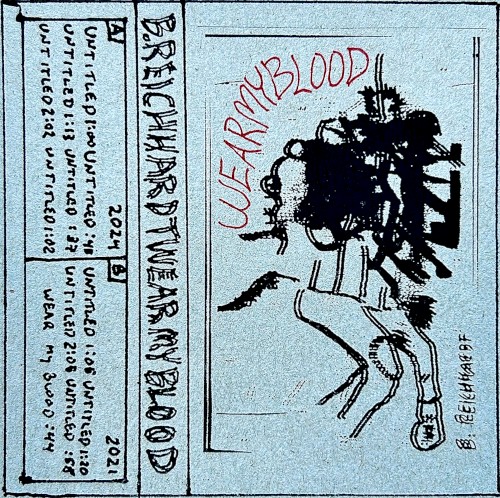 WEARMYBLOOD
B. REICHHARDT
B.REICHHARDT WEAR MY BLOOD
A 2024
UNTITLED 1:00 UNTITLED :48
UNTITLED 1:13 UNTITLED
UNTITLED 2:02 UNTITLED 1:02
B 2021
UNTITLED 1:06 UNTITLED 1:20
UNTITLED 2:06 UNTITLED :58
WEAR MY BLOOD :44